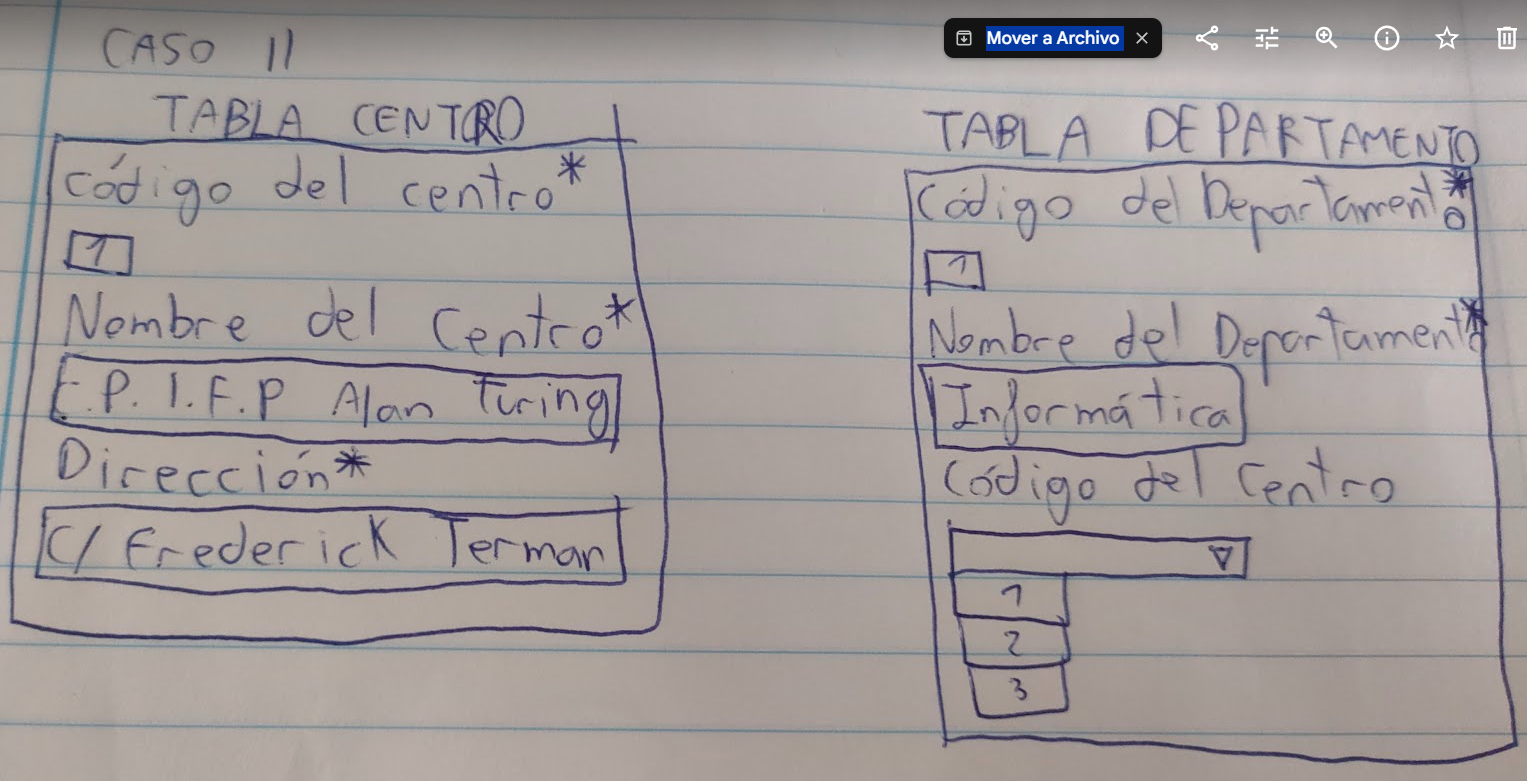 Mover a Archivo
CASO 11
TABLA CENTRO
Código del centro*
1
Nombre del Centro*
E.P.I.F.P Alan Turing
Dirección*
C/ Frederick Terman
TABLA DEPARTAMENTO
Código del Departamento*
1
Nombre del Departamento*
Informática
Código del Centro
1
2
3